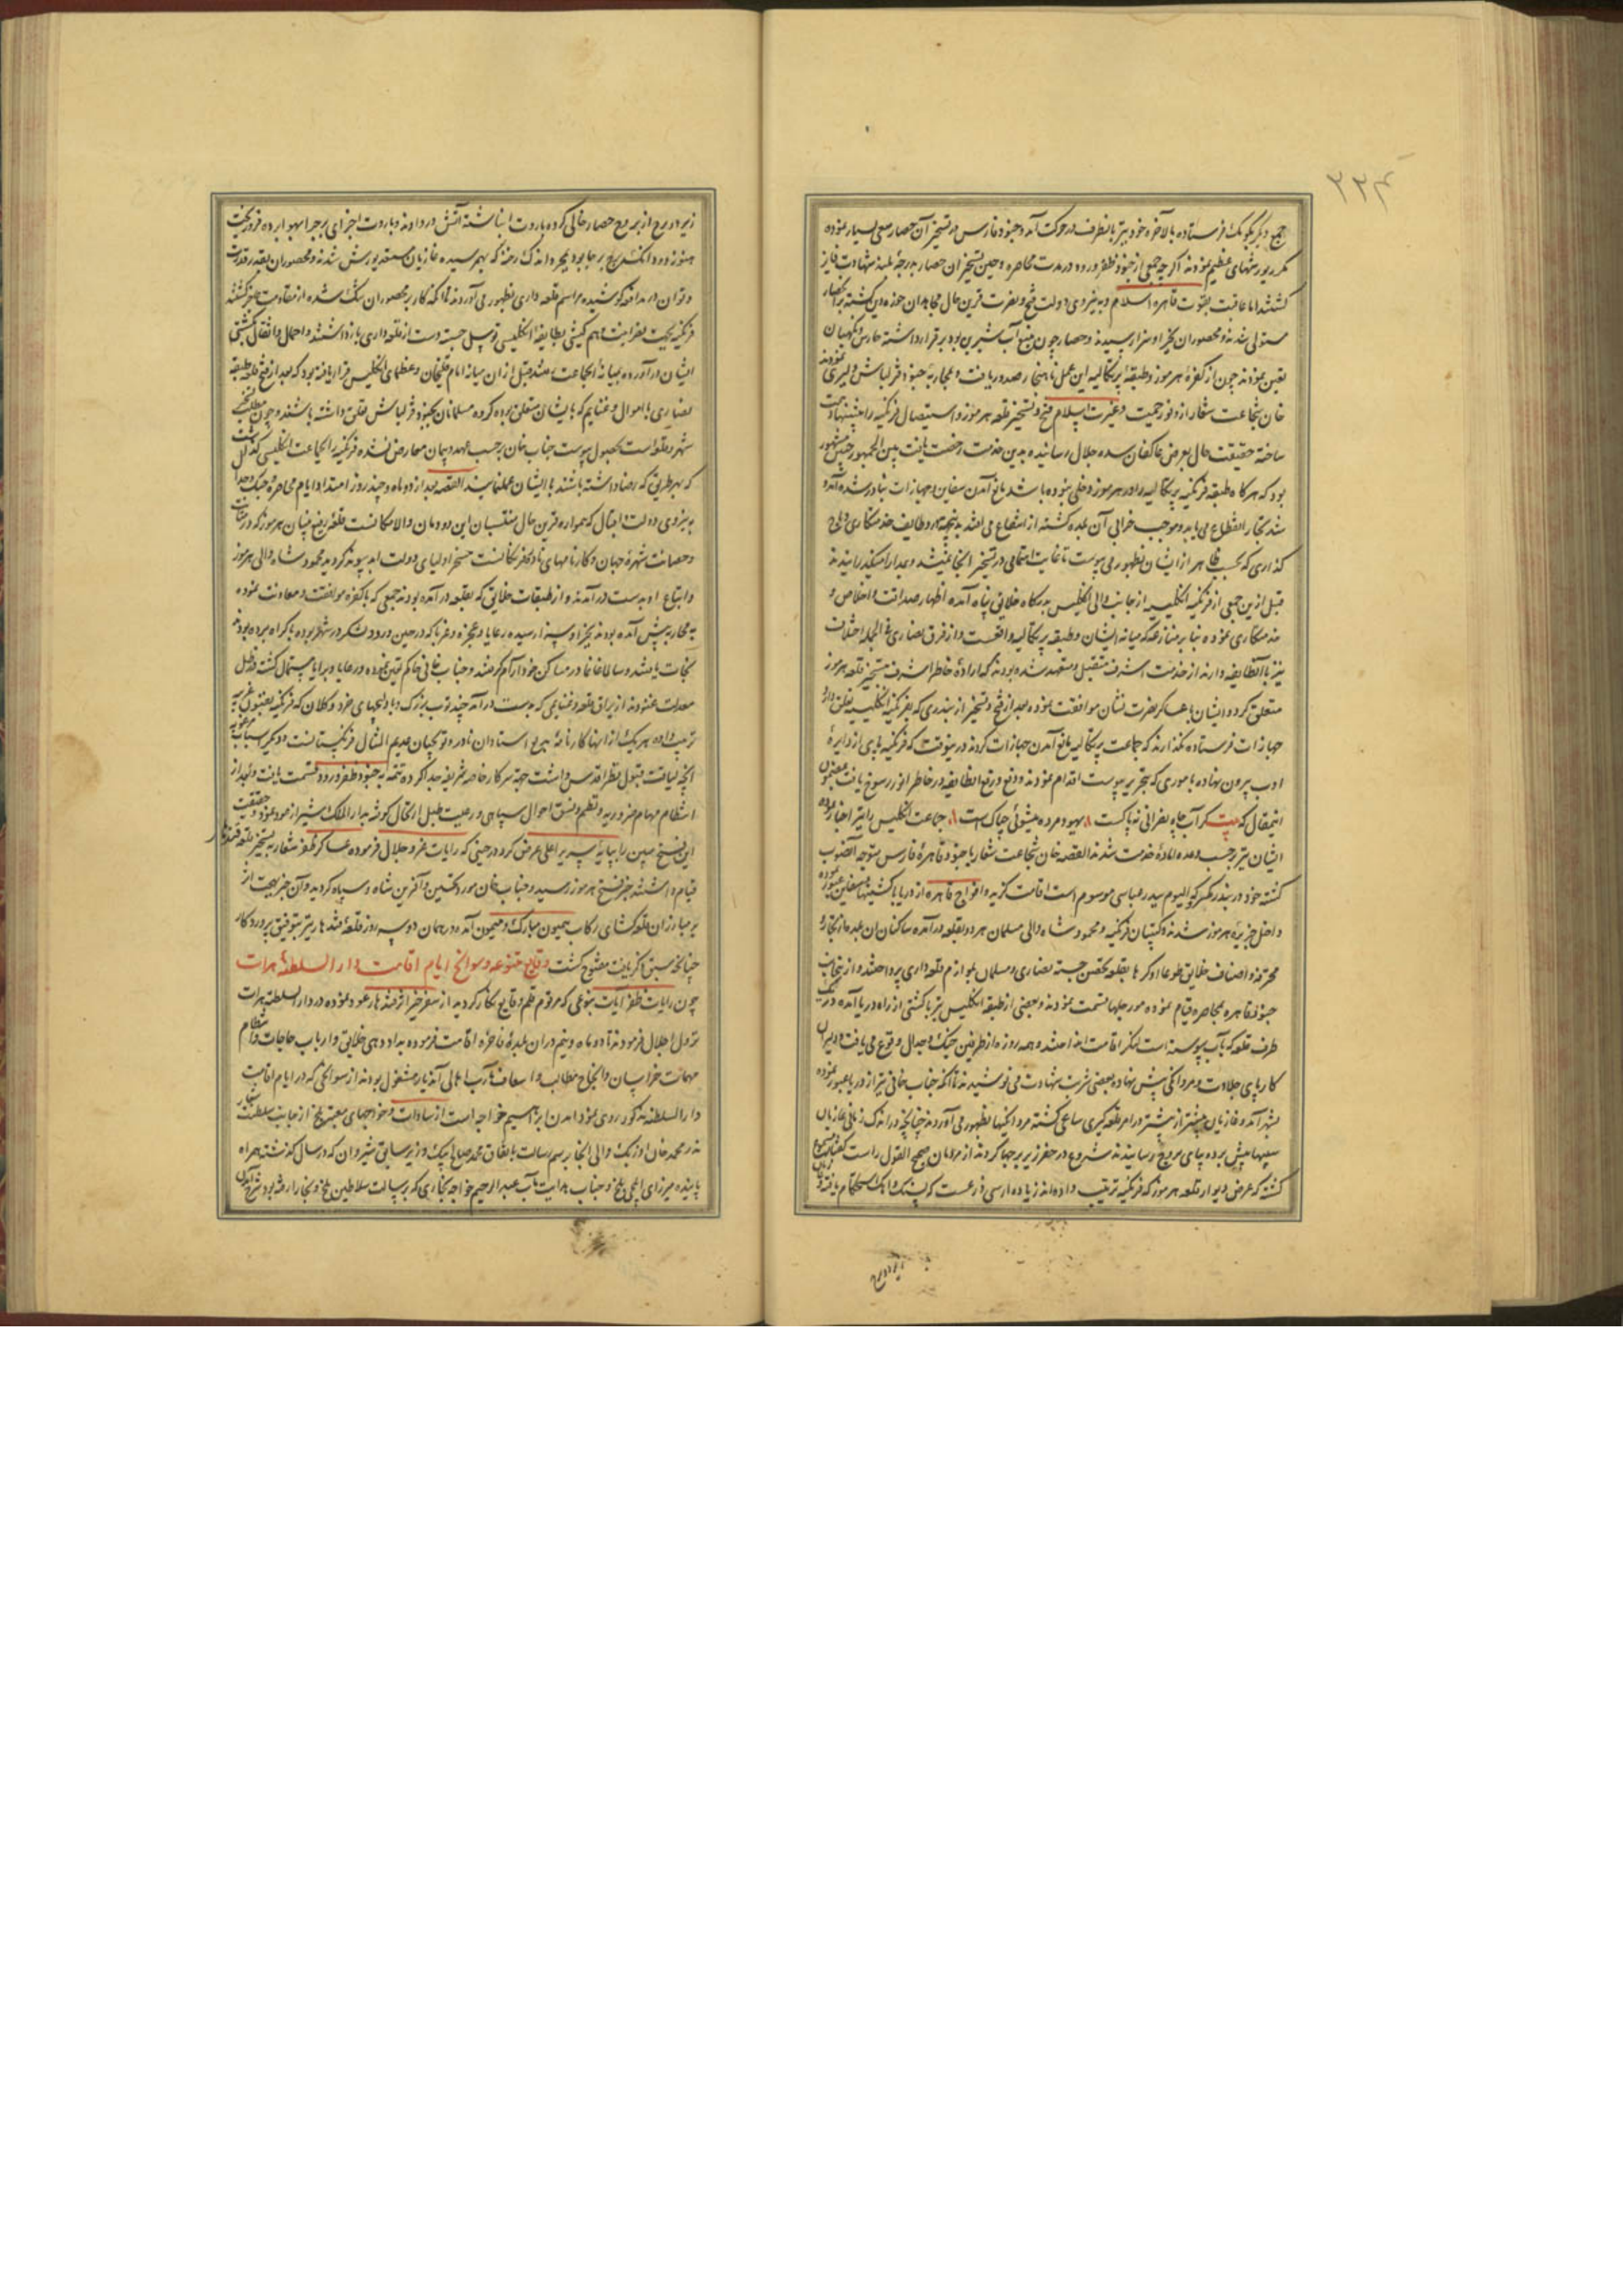 ۲۲۴
جمع دیگر بکومک فرستاده بالاخره خود نیز بانطرف در حرکت آمد و جنود فارس در تسخیر آن حصار سعی بسیار نموده
مکرر یورشهای عظیم نمودند اگرچه جمعی از جنود ظفر ورود در مدت محاصره و حین تسخیر ان حصار بدرجهٔ بلند شهادت فایز
گشتند اما عاقبت بقوت قاهره اسلام و به نیروی دولت فتح و نصرت قرین حال مجاهدان حوزه دین گشته بر انحصار
مستولی شدند و محصوران بجزا و سزا رسیدند و حصار چون منبع آب شیرین بود برقرار داشته حارس و نگهبان
تعیین نمودند چون از کفرهٔ هرموز و طبقهٔ پرتکالیه این عمل ناهنجار صدور یافت و بمحاربهٔ جنود قزلباش دلیری نمودند
خان شجاعت شعار از وفور حمیت و غیرت اسلام فتح و تسخیر قلعه هرموز و استیصال فرنگیه را پیشنهاد همت
ساخته حقیقت حال بعرض عاکفان سده جلال رسانیده بدین خدمت رخصت یافت بین الجمهور چنین مشهور
بود که هرگاه طبقه فرنگیه پرتکالیه را در هرموز دخلی نبوده باشد مانع آمدن سفاین و جهازات بنادر شده آمد و
شد تجار انقطاع می یابد و موجب خرابی آن بلده گشته از انتفاع می افتد بدینجهة در وظایف خدمتکاری و باج
گذاری که بحسب ظاهر از ایشان بظهور می پیوست تا غایت اهتمامی در تسخیر انجا نمیشد و بمدارا میگذرانیدند
قبل ازین جمعی از فرنگیه انگلیسیه از جانب والی انگلیس بدرگاه خلایق پناه آمده اظهار صداقت و اخلاص و
خدمتکاری نموده بنا بر منازعه که میانه ایشان و طبقه پرتکالیه واقعست و از فرق نصاری فی الجمله اختلاف
نیز با آنطایفه دارند از خدمت اشرف متقبل و متعهد شده بودند که اراده خاطر اشرف بتسخیر قلعه هرموز
متعلق گردد ایشان با عساکر نصرت نشان موافقت نموده بعد از فتح و تسخیر از بندری که بفرنگیه انگلیسیه تعلق دارد
جهازات فرستاده نگذارند که جماعت پرتکالیه مانع آمدن جهازات گردند درینوقت که فرنگیه پای از دایرهٔ
ادب بیرون نهاده باموری که تحریر پیوست اقدام نمودند و دفع و رفع انطایفه در خاطر انور رسوخ یافت بمضمون
اینمقال که بیت گر آب چاه نصرانی نه پاکست ٨ یهود مرده میشوئی چه باکست ٨ جماعت انگلیس را نیز اخبار نموده
ایشان نیز بر حسب وعده اماده خدمت شدند القصه خان شجاعت شعار با جنود قاهرهٔ فارس متوجه الصوب
گشته خود در بندر گمبرو که الیوم ببندر عباسی موسوم است اقامت گزیده افواج قاهره از دریا با کشتیها و سفاین عبور نموده
داخل جزیره هرموز شدند و کپتیان فرنگیه و محمود شاه والی مسلمان هر دو بقلعه در آمده ساکنان ان بلده از تجار و
محترفه و اصناف خلایق طوعا او کرها بقلعه تحصن جسته نصاری و مسلمان بلوازم قلعه داری پرداختند و ازینجانب
جنود قاهره بمحاصره قیام نموده مورچلها قسمت نمودند و بعضی از طبقه انگلیس نیز با کشتی از راه دریا آمده در یک
طرف قلعه که بآب پیوسته است لنگر اقامت انداختند و همه روزه از طرفین جنگ و جدال وقوع می یافت و دلیران
کار پای جلادت و مردانگی پیش نهاده بعضی شربت شهادت می نوشیدند تا انکه جناب خانی نیز از دریا عبور نموده
بشهر آمد و غازیان بیشتر از پیشتر در امر قلعه گیری ساعی گشته مردانگیها بظهور می آوردند چنانچه در اندک زمانی غازیان
سیبها پیش برده بپای بروج رسانیدند و شروع در حفر زیر برجها کردند از مردمان صحیح القول راست گفتار مسموع
گشته که عرض دیوار قلعه هرموز که فرنگیه ترتیب داده اند زیاده از سی ذرعست که بسنگ و آهک استحکام یافته غازیان
زیر دو برج
زیر دو برج از بروج حصار خالی کرده باروت انباشته آتش در دادند و باروت اجزای برجرا بهوا برده فرو ریخت
هنوز دود انگشت برج بر جا بود بمجرد اندک رخنه که بهم رسیده غازیان مستعد یورش شدند و محصوران بقدر قدرت
و توان در مدافعه کوشیده مراسم قلعه داری بظهور می آوردند تا آنکه کار بر محصوران تنگ شده از مقاومت عاجز گشتند
فرنگیه بجهت نصرانیت و هم کیشی بطایفه انگلیسی توسل جسته دست از قلعه داری بازداشتند و احمال و اثقال بکشتی
ایشان درآورده بمیانه انجماعت رفتند قبل از ان میانه امام قلیخان و عظمای انگلیس قرار یافته بود که بعد از فتح قلعه طبقه
نصاری با اموال و غنایم که بایشان متعلق بوده گروه مسلمانان بجنود قزلباش تعلق داشته باشند و چون مطلب فتح
شهر و قلعه است بحصول پیوست جناب خان بر حسب عهد و پیمان معارض نشده فرنگیه را بجماعت انگلیسی گذاشت
که بهر طریق که رضا داشته باشند با ایشان عمل نمایند القصه بعد از دو ماه و چند روز امتداد ایام محاصره و جنگ و جدال
به نیروی دولت و اقبال که همواره قرین حال منتسبان این دودمان والا مکانست قلعهٔ رفیع بنیان هرموز که در متانت
و حصانت شهرهٔ جهان و کارنامهای نادر فرنگانست مسخر اولیای دولت ابد پیوند گردید محمود شاه والی هرموز
و اتباع او بدست در آمدند و از طبقات خلایق که بقلعه در آمده بودند جمعی که با کفره موافقت و معاونت نموده
به محاربه پیش آمده بودند بجزا و سزا رسیده رعایا و عجزه و غربا که در حین ورود لشکر در شهر بوده باکراه برده بودند
نجات یافتند و سالما غانما در مساکن خود آرام گرفتند و جناب خانی حاکم تعیین نموده در رعایا و برایا مستمال گشت و ظل
معدلت غنودند از یراق قلعه و غنایمی که بدست در آمد چند توپ بزرگ و بادلیجهای خرد و کلان که فرنگیه بفنون غریبه
ترتیب داده هر یک از انها کارنامهٔ بدیع استادان نادره و توپچیان عدیم المثال فرنگیستانست و دیگر اسباب مرغوبه
آنچه لیاقت قبول نظر اقدس داشت جهة سرکار خاصه شریفه جدا کرده تتمه به جنود ظفر ورود قسمت یافت و بعد از
انتظام مهام ضروریه و نظم و نسق احوال سپاهی و رعیت طبل ارتحال کوفته بدار الملک شیراز عود نمود و حقیقت
این فتح مبین را بپایهٔ سریر اعلی عرض کرد در حینی که رایات عز و جلال فرموده عساکر ظفر شعار به تسخیر قلعه قندهار
قیام داشتند خبر فتح هرموز رسید و جناب خان مورد تحسین و آفرین شاه و سپاه گردید و آن خبر بهجت اثر
بر مبارزان قلعه گشای رکاب همیون مبارک و میمون آمده در همان دو سه روز قلعهٔ قندهار نیز بتوفیق پروردگار
چنانچه سبق ذکر یافت مفتوح گشت وقایع متنوعه و سوانح ایام اقامت دار السلطنهٔ هرات
چون رایات ظفر آیات بنوعی که مرقوم قلم وقایع نگار گردید از سفر خیر اثر قندهار عود نموده در دار السلطنهٔ هرات
نزول اجلال فرمودند تا دو ماه و نیم در ان بلدهٔ فاخره اقامت فرموده بداد دهی خلایق و ارباب حاجات و انتظام
مهمات خراسان و انجاح مطالب و اسعاف مآرب اهالی آندیار مشغول بودند از سوانحی که در ایام اقامت
دار السلطنه مذکور روی نمود آمدن ابراهیم خواجه است از سادات و خواجهای معتبر بلخ از جانب سلطنت شعار
ندر محمد خان اوزبک والی انجا برسم رسالت باتفاق محمد صالح بیک وزیر سابق شیروان که در سال گذشته همراه
پاینده میرزای ایلچی بلخ و جناب هدایت مآب عبد الرحیم خواجه بخاری که برسالت سلاطین بلخ و بخارا رفته بود شرح آمدن